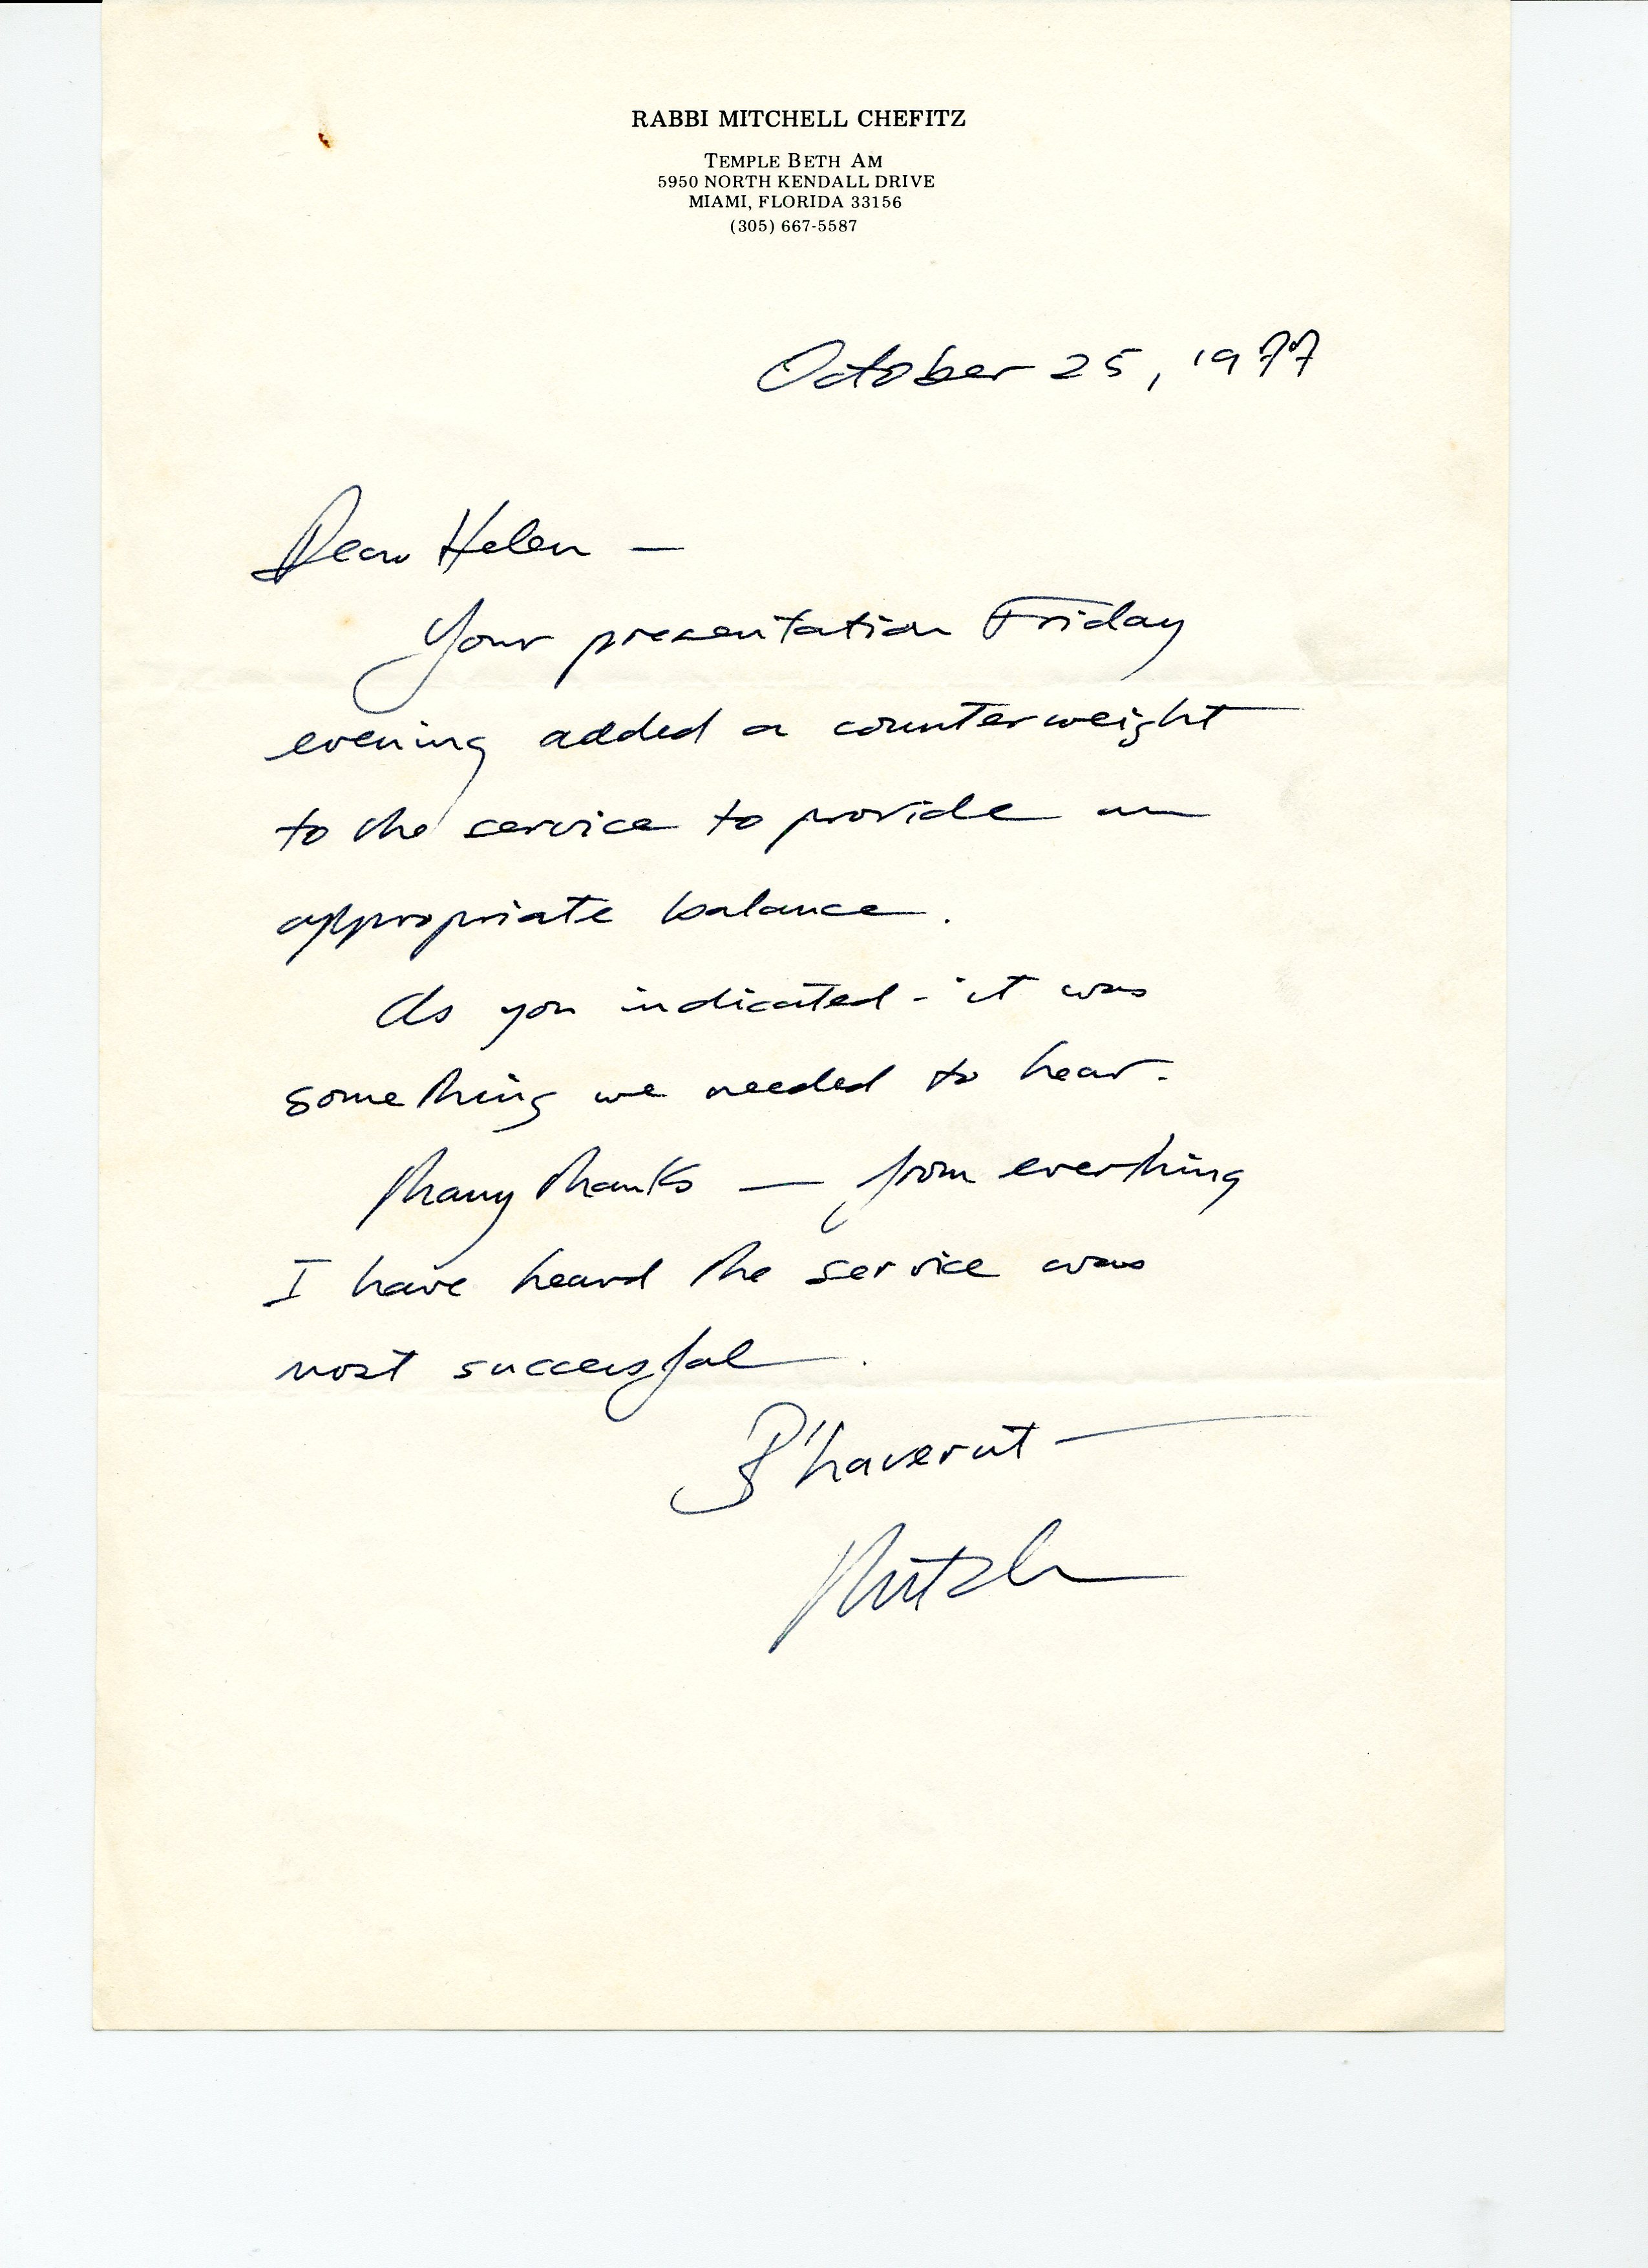 RABBI MITCHELL CHEFITZ
TEMPLE BETH AM
5950 NORTH KENDALL DRIVE
MIAMI, FLORIDA 33156
(305) 667-5587
October 25, 1977
Dear Helen —
Your presentation Friday
evening added a counterweight
to the service to provide an
appropriate balance.
As you indicated - it was
something we needed to hear.
Many thanks — from everthing
I have heard the service was
most successful.
B'haverut —
Mitch